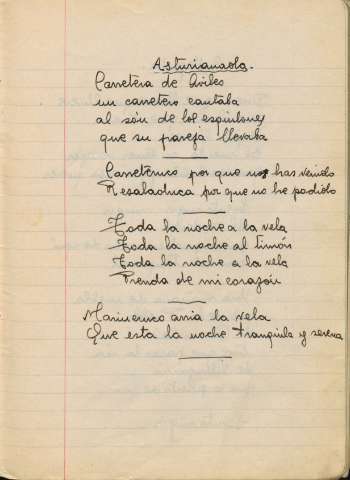 Asturianada.
Carretera de Aviles
un carretero cantaba
al són de los esquilones
que su pareja llevaba
Carreteruco por que no has venido
Resaladuca por que no he podido
Toda la noche a la vela
Toda la noche al timón
Toda la noche a la vela
Prenda de mi corazón
Marineruco arria la vela
Que esta la noche tranquila y serena